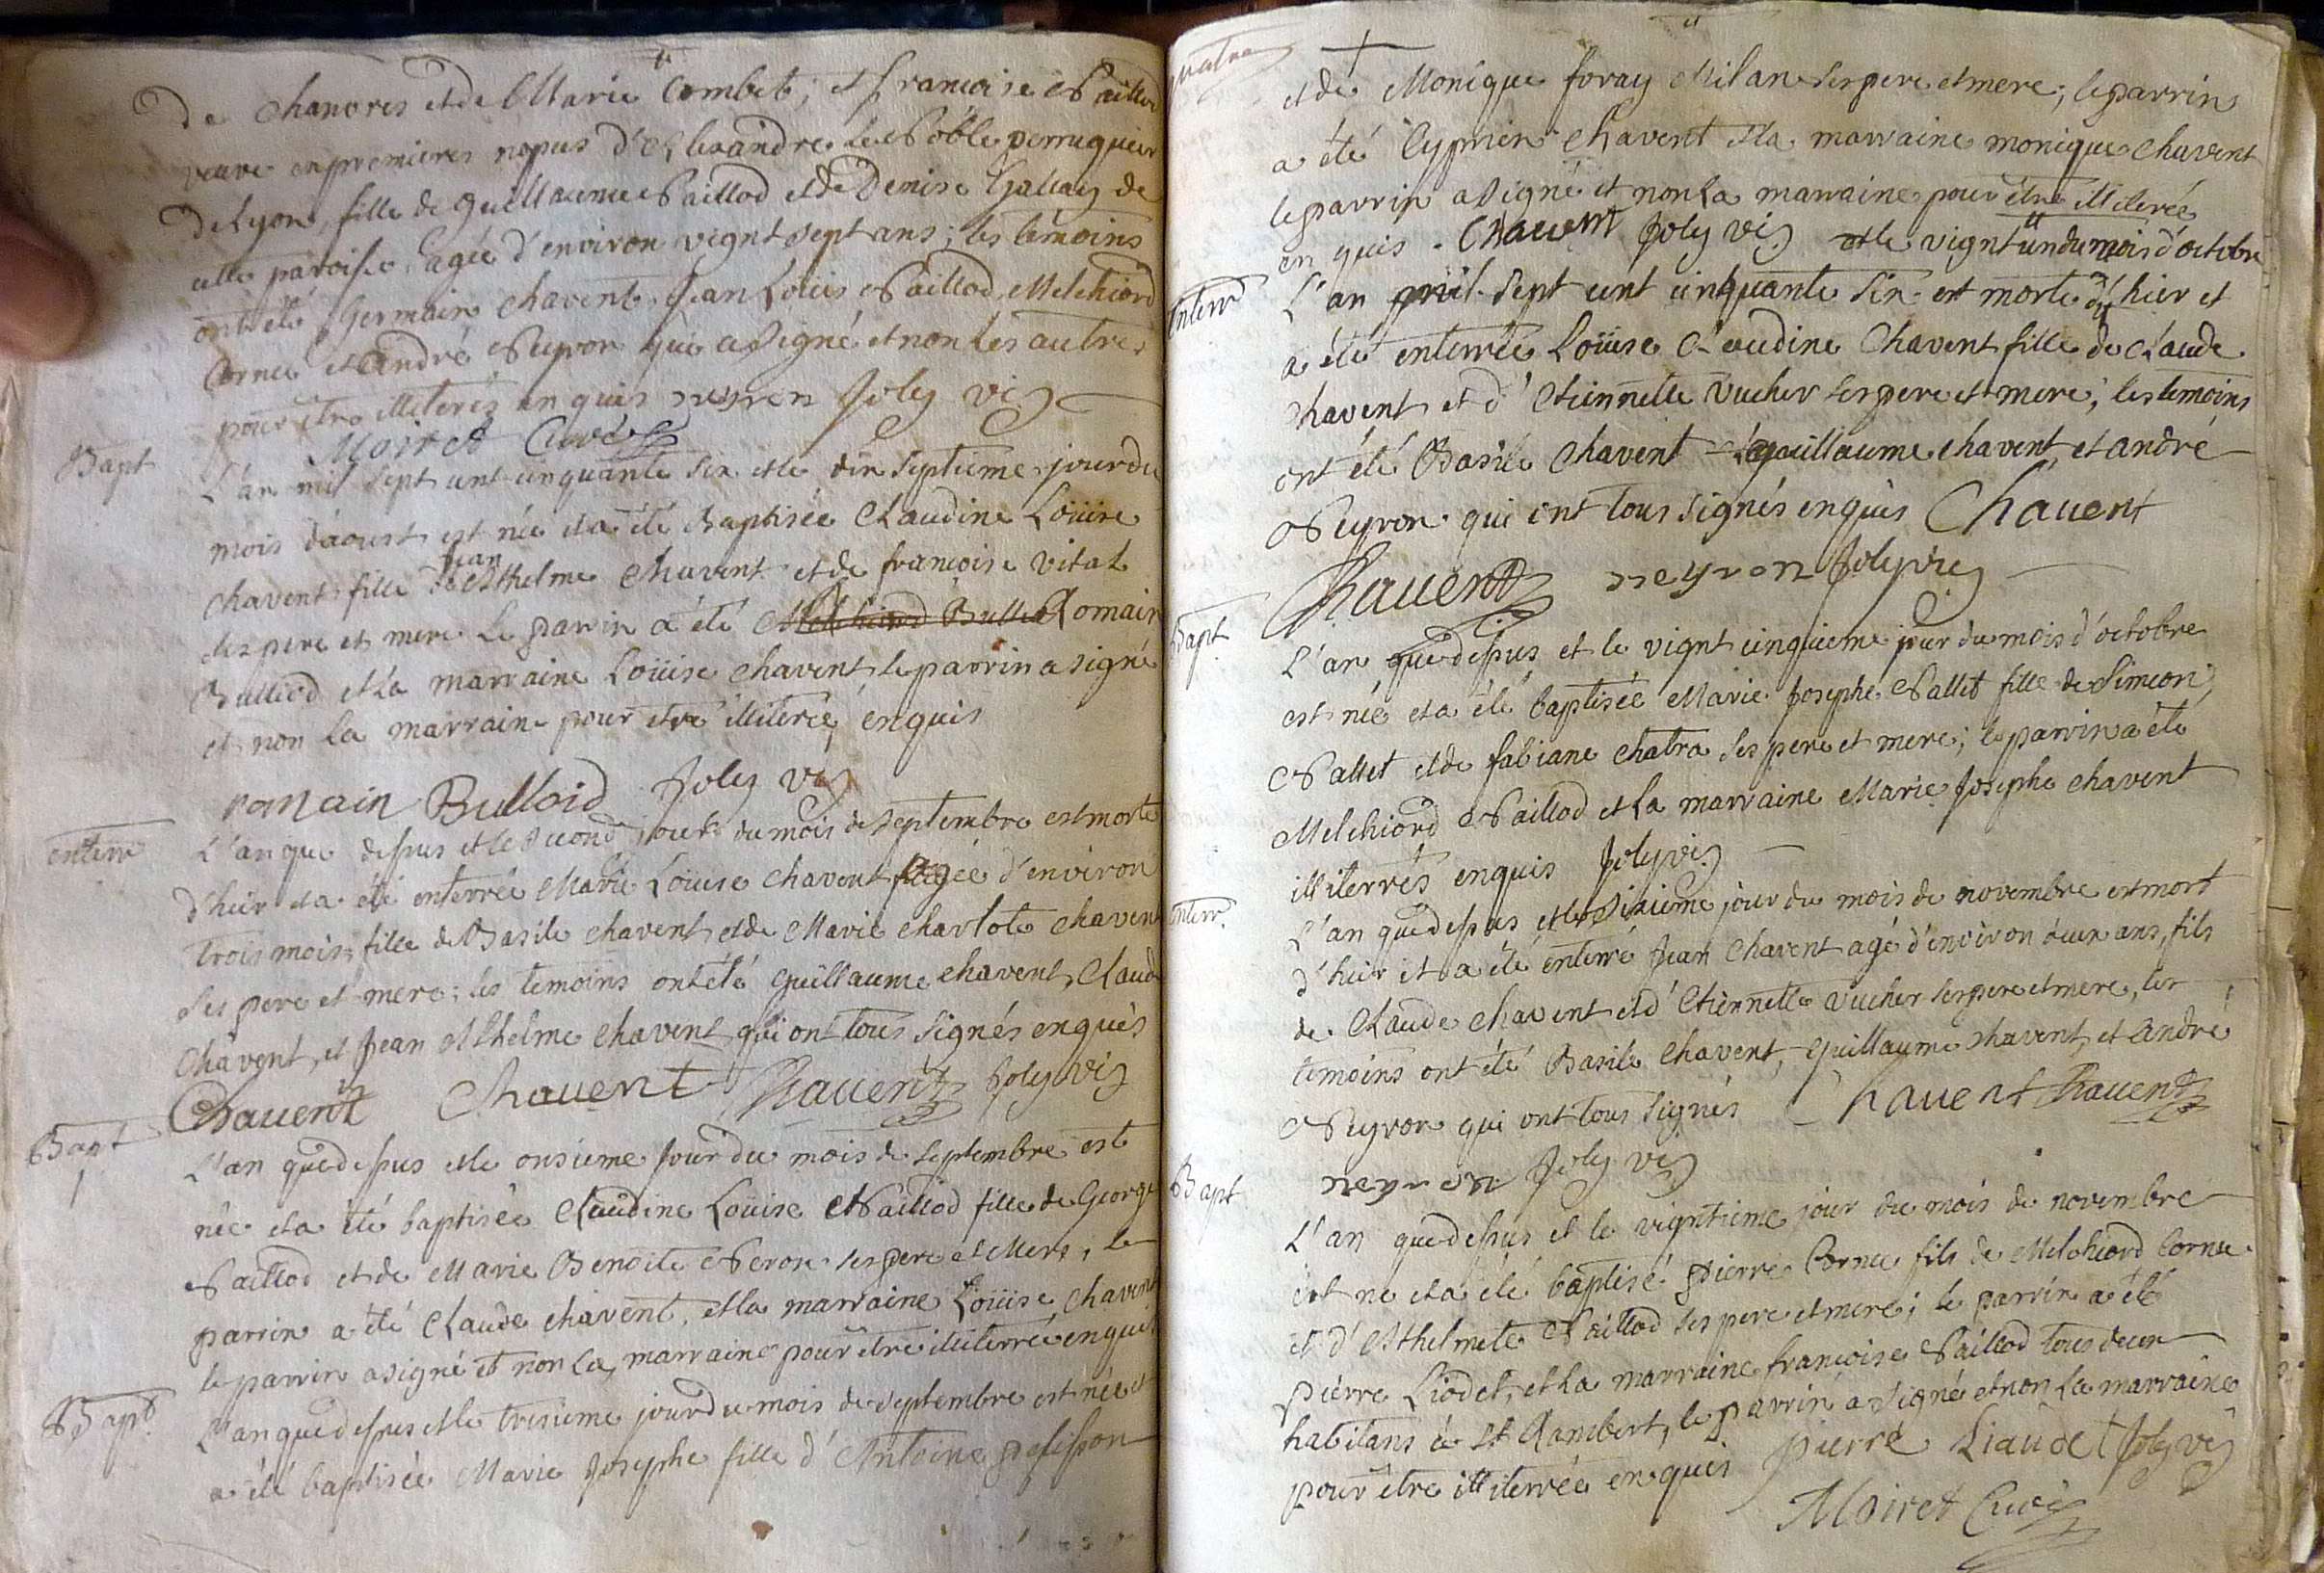 De Chanores et de Marie Combet; et francoise Paillod
veuve en premieres nopces d'Alexandre le Noble perruquier
de Lyon, fille de guillaume Paillod et de Denise Gallay de
cette paroisse, agée d'environ vignt sept ans; les temoins
ont été Germain Chavent, Jean Loüis Paillod, Melchiord
Cornu et André Neyron qui a signé et non les autres
pour être illiterés enquis neyron Joly vic
Moiret Curé
Bapt
L'an mil sept cent cinquante six et le dix septieme jour du
mois d'aoust est née et a été Baptisée Claudine Loüise
Chavent fille de Jean Anthelme Chavent et de françoise vital
ses pere et mere le parrin a été Melchiord Bulliod Romain
Bulliod et la marraine Loüise Chavent, le parrin a signé
et non la marraine pour etre illiterée enquis
romain Bulloid Joly vic
enterr
L'an que dessus et le second jour du mois de septembre est morte
d'hier et a été enterrée Marie Loüise Chavent agée d'environ
trois mois, fille de Basile Chavent et de Marie Charlote Chavent
ses pere et mere; les temoins ont été guillaume Chavent, Claude
Chavent, et Jean Athelme Chavent qui ont tous signés enquis
Chauent Chauent Chauent Joly vic
Bapt
L'an que dessus et le onsieme jour du mois de septembre est
née et a été baptisée Claudine Loüise Paillod fille de George
Paillod et de Marie Benoite Neron ses pere et mere, le
parrin a été Claude Chavent, et la marraine Loüise Chavent
le parrin a signé et non la marraine pour etre illiterrée enquis
Bapt
L'an que dessus et le tresieme jour du mois de septembre est née et
a été baptisée Marie Josephe fille d'Antoine pesisson
et de Monique foray Milan ses pere et mere; le parrin
a été Cyprien Chavent et la marraine monique Chavent
le parrin a signé et non la marraine pour être illiterée
en quis. Chauent Joly vic et le vignt un du mois d'octobre
Enterr
L'an mil sept cent cinquante six est morte d'hier et
a été enterrée Loüise Claudine Chavent fille de Claude
Chavent et d'Etiennette Vucher ses pere et mere; les temoins
ont été Basile Chavent guillaume Chavent, et andré
Neyron qui ont tous signés enquis Chauent
Chauent neyron Joly vic
Bapt
L'an que dessus et le vignt cinquieme jour du mois d'octobre
est née et a été baptisée Marie Josephe Pallet fille de Simeon
Pallet et de fabiane Chatra ses pere et mere; le parrin a été
Melchiord Paillod et la marraine Marie Josephe Chavent
illiterrés enquis Joly vic
Enterr.
L'an que dessus et le Sixieme jour du mois de novembre est mort
d'hier et a été enterré Jean Chavent agé d'environ deux ans, fils
de Claude Chavent et d'Etiennette Vucher ses pere et mere, les
temoins ont été Basile Chavent, guillaume Chavent, et André
Neyron qui ont tous signés Chauent Chauent
neyron Joly vic
Bapt
L'an que dessus et le vigntieme jour du mois de novembre
est né et a été baptisé Pierre Cornu fils de Melchiord Cornu
et d'Athelmete Paillod ses pere et mere; le parrin a été
Pierre Liodet, et la marraine francoise Paillod tous deux
habitans à St Rambert, le parrin a signé et non la marraine
pour être illiterrée enquis pierre Liaudet Joly vic
Moiret Curé